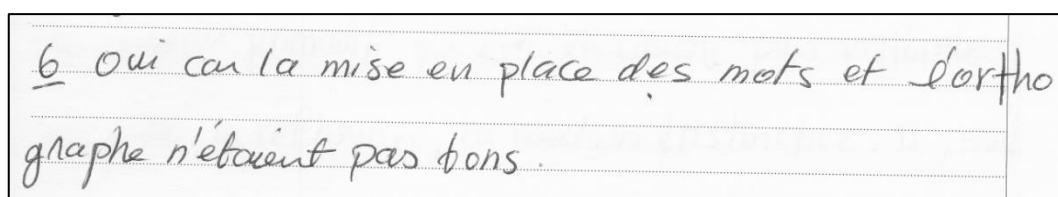 6 Oui car la mise en place des mots et l'ortho
graphe n'étaient pas bons.